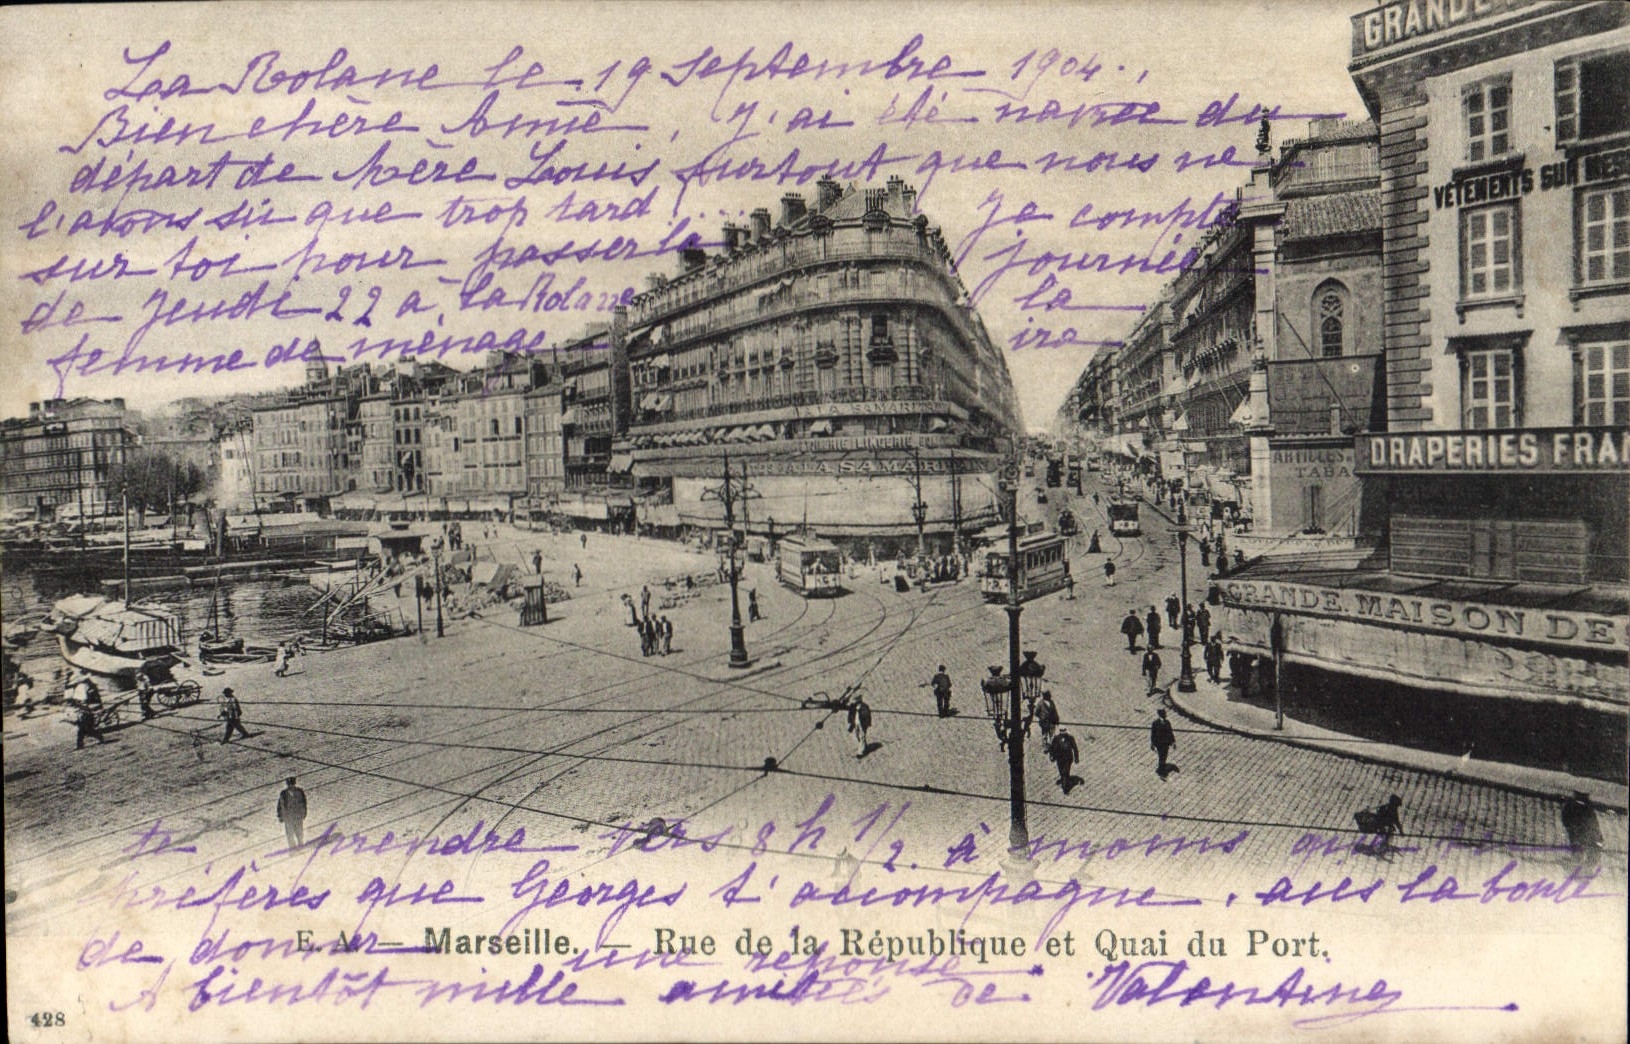 La Rolane le 19 Septembre 1904.,
Bien chère Amie, J'ai été navrée du
départ de Frère Louis surtout que nous ne
l'avons su que trop tard! Je compte
sur toi pour passer la journée
de Jeudi 22 à la Rolane la
femme de ménage ira
te prendre vers 8 h 1/2. à moins que tu
préfères que Georges t'accompagne. aies la bonté
de donner une réponse
A bientôt mille amitiés de Valentine
GRANDE
VÊTEMENTS SUR MES
DRAPERIES FRA
TABA
GRANDE MAISON DE
LINGERIE
A LA SAMARITAINE
E. A. — Marseille. — Rue de la République et Quai du Port.
428